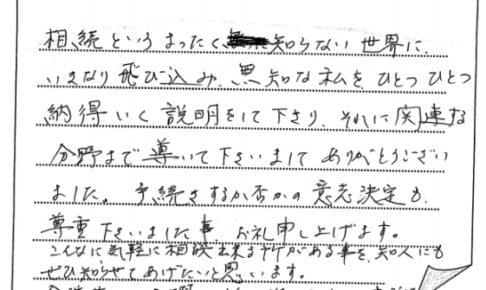 相続というまったく知らない世界に、
いきなり飛び込み、無知な私をひとつひとつ
納得いく説明をして下さり、それに関連する
分野まで導いて下さいまして ありがとうござい
ました。手続きするか否かの意志決定も、
尊重下さいました事 お礼申し上げます。
こんなに気軽に相談出来る所がある事を、知人にも
ぜひ知らせてあげたいと思います。